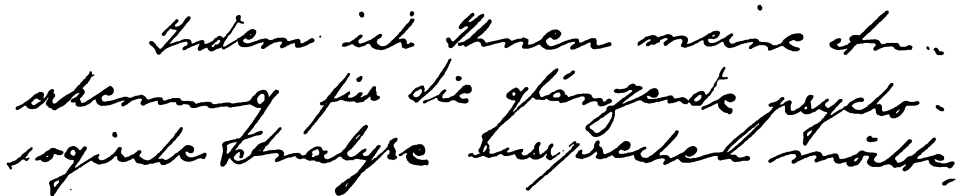 Indem ich Ihnen meine An-
erkennung für die glänzende psycho-
logische Analyse aussprechen möchte,